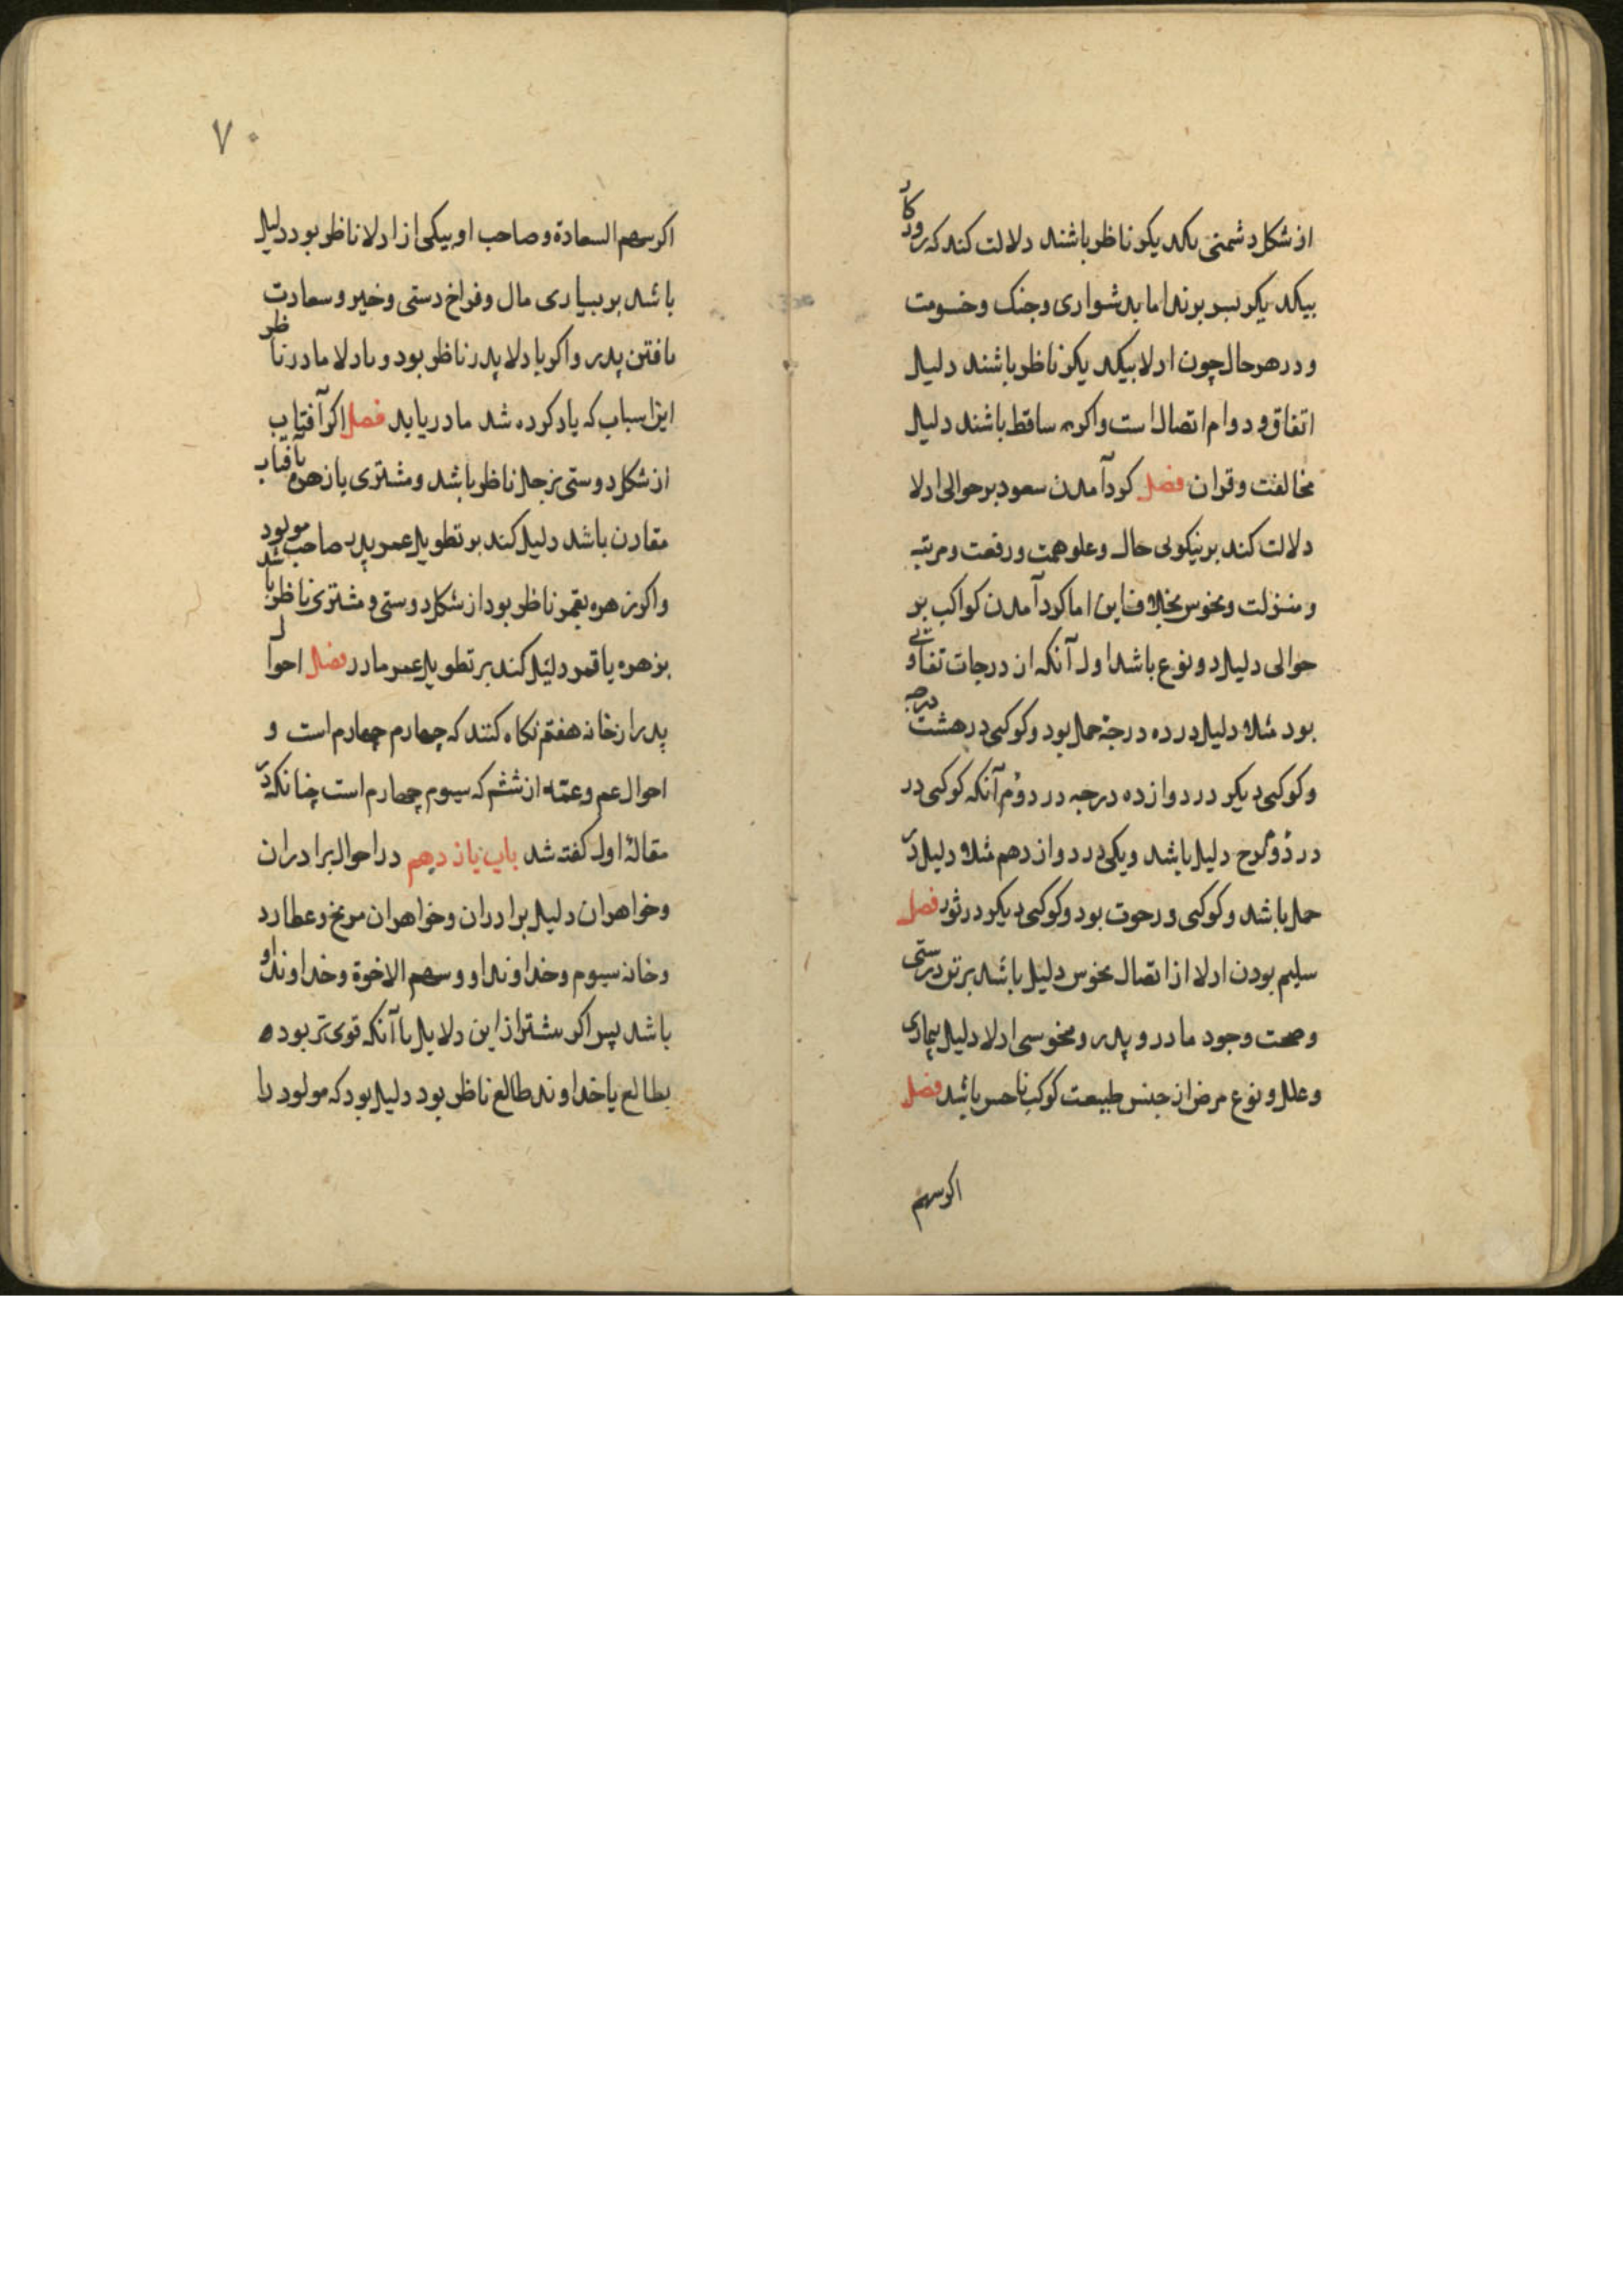 از شکل دشمنی بکدیکر ناظر باشند دلالت کند که روزکار
بیکدیکر بسر برند اما بدشواری وجنک وخصومت
ودر هر حال چون ادلا بیکدیکر ناظر باشند دلیل
اتفاق ودوام اتصال است واکر ساقط باشند دلیل
مخالفت وقران فصل کرد آمدن سعود بر حوالی ادلا
دلالت کند بر نیکوئی حال وعلو همت ورفعت ومرتبه
ومنزلت ونحوس بخلاف این اما کرد آمدن کواکب بر
حوالی دلیل دو نوع باشد اول آنکه از درجات تفاوتی
بود مثلا دلیل در ده درجهٔ حمل بود وکوکبی در هشت درجه
وکوکبی دیکر در دوازده درجه در دوم آنکه کوکبی در
در دوم برج دلیل باشد ویکی در دوازدهم مثلا دلیل در
حمل باشد وکوکبی ورحوت بود وکوکبی دیکر در ثور فصل
سلیم بودن ادلا از اتصال نحوس دلیل باشد بر تن درستی
وصحت وجود مادر وپدر ومنحوسی ادلا دلیل بیماری
وعلل ونوع مرض از جنس طبیعت کوکب ناحس باشد فصل
اکر سهم
۷۰
اکر سهم السعادة وصاحب او بیکی از ادلا ناظر بود دلیل
باشد بر بسیاری مال وفراخ دستی وخیر وسعادت
یافتن پدر واکر با دلا پدر ناظر بود وبادلا مادر ناظر
این اسباب که یاد کرده شد مادر یابد فصل اکر آفتاب
از شکل دوستی بزحل ناظر باشد ومشتری یا زهره بآفتاب
مقارن باشد دلیل کند بر تطویل عمر پدر صاحب مولود
واکر زهره بقمر ناظر بود از شکل دوستی ومشتری ناظر باشد
بزهره یا قمر دلیل کند بر تطویل عمر مادر فصل احوال
پدر از خانه هفتم نکاه کنند که چهارم چهارم است و
احوال عم وعمّه از ششم که سیوم چهارم است چنانکه در
مقالهٔ اول کفته شد باب یازدهم در احوال برادران
وخواهران دلیل برادران وخواهران مریخ وعطارد
وخانه سیوم وخداوند او وسهم الاخوة وخداوند او
باشد پس اکر بیشتر از این دلایل یا آنکه قوی تر بود
بطالع یا خداوند طالع ناظر بود دلیل بود که مولود را